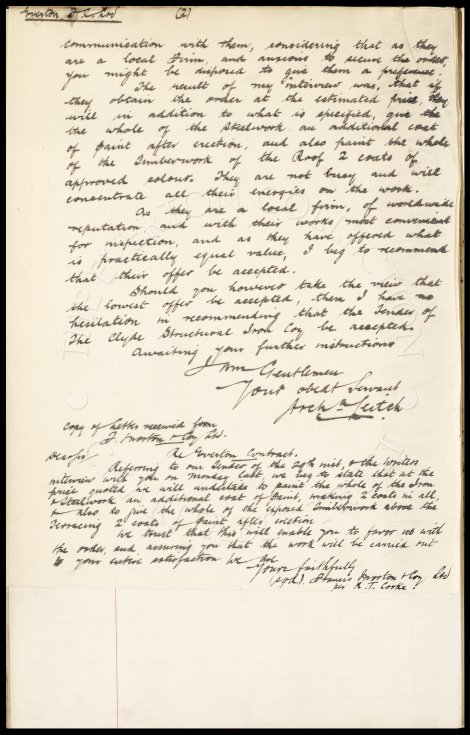 Everton F.C. Ltd (2)
communication with them, considering that as they
are a local Firm, and anxious to secure the order,
you might be disposed to give them a preference.
The result of my interview was, that if
they obtain the order at the estimated price they
will in addition to what is specified, give the
the whole of the Steelwork an additional coat
of paint after erection, and also paint the whole
of the Timberwork of the Roof 2 coats of
approved colour. They are not busy and will
concentrate all their energies on the work.
As they are a local firm, of worldwide
reputation and with their works most convenient
for inspection, and as they have offered what
is practically equal value, I beg to recommend
that their offer be accepted.
Should you however take the view that
the lowest offer be accepted, then I have no
hesitation in recommending that the Tender of
The Clyde Structural Iron Coy be accepted.
Awaiting your further instructions
I am Gentlemen
Your obedt Servant
Archd Leitch
Copy of letter received from
F. Morton & Coy Ltd.
Dear Sir Re Everton Contract.
Referring to our Tender of the 29th inst, & the writers
interview with you on Monday last, we beg to state that at the
price quoted we will undertake to paint the whole of the Iron
& Steelwork an additional coat of Paint, making 2 coats in all,
& also to give the whole of the exposed Timberwork above the
Terracing 2 coats of Paint after erection
We trust that this will enable you to favor us with
the order, and assuring you that the work will be carried out
to your entire satisfaction we are
Yours faithfully
(sgd) Francis Morton & Coy Ltd
per R. T. Cooke.